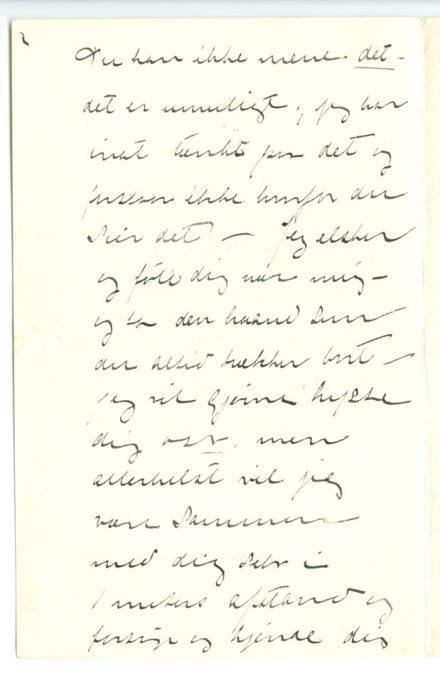 Du kan ikke mene det -
det er umuligt, jeg har
inat tænkt paa det og
forstaar ikke hvorfor du
sier det - jeg elsker
og föle dig nær mig -
og ta den haand som
du altid trækker bort -
jeg vil gjerne kysse
dig osv. men
allerhelst vil jeg
være sammen
med dig selv i
1 meters afstand og
forsöge og kjende dig